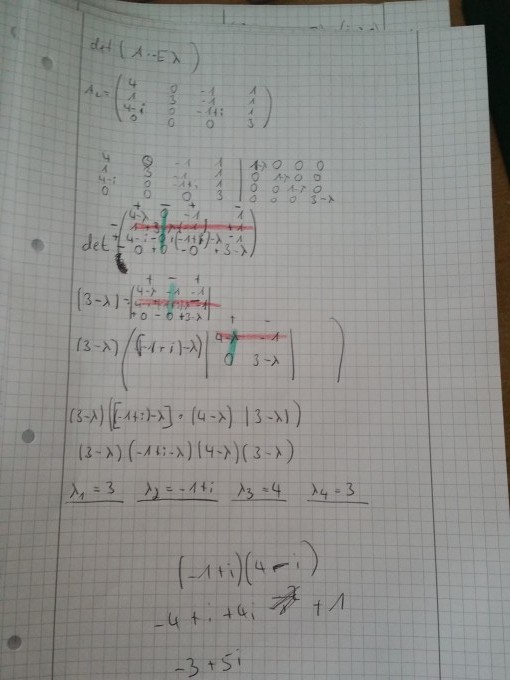 det ( A - Eλ )
4 0 -1 1
A₂ = ( 1 3 -1 1 )
4-i 0 -1+i 1
0 0 0 3
4 0 -1 1 | 1-λ 0 0 0
1 3 -1 1 | 0 1-λ 0 0
4-i 0 -1+i 1 | 0 0 1-λ 0
0 0 0 3 | 0 0 0 3-λ
+ - + -
4-λ 0 -1 1
det
4-i -0 +(-1+i)-λ -1
-0 +0 -0 +3-λ
+ - +
(3-λ) = | 4-λ -1 -1 |
+0 -0 +3-λ
+ -
(3-λ) ( [-1+i)-λ) | 4-λ -1 | )
0 3-λ
(3-λ) ([-1+i)-λ] · (4-λ) (3-λ))
(3-λ) (-1+i-λ) (4-λ) (3-λ)
λ₁ = 3 λ₂ = -1+i λ₃ = 4 λ₄ = 3
(-1+i)(4-i)
-4 + i + 4i + 1
-3 + 5i